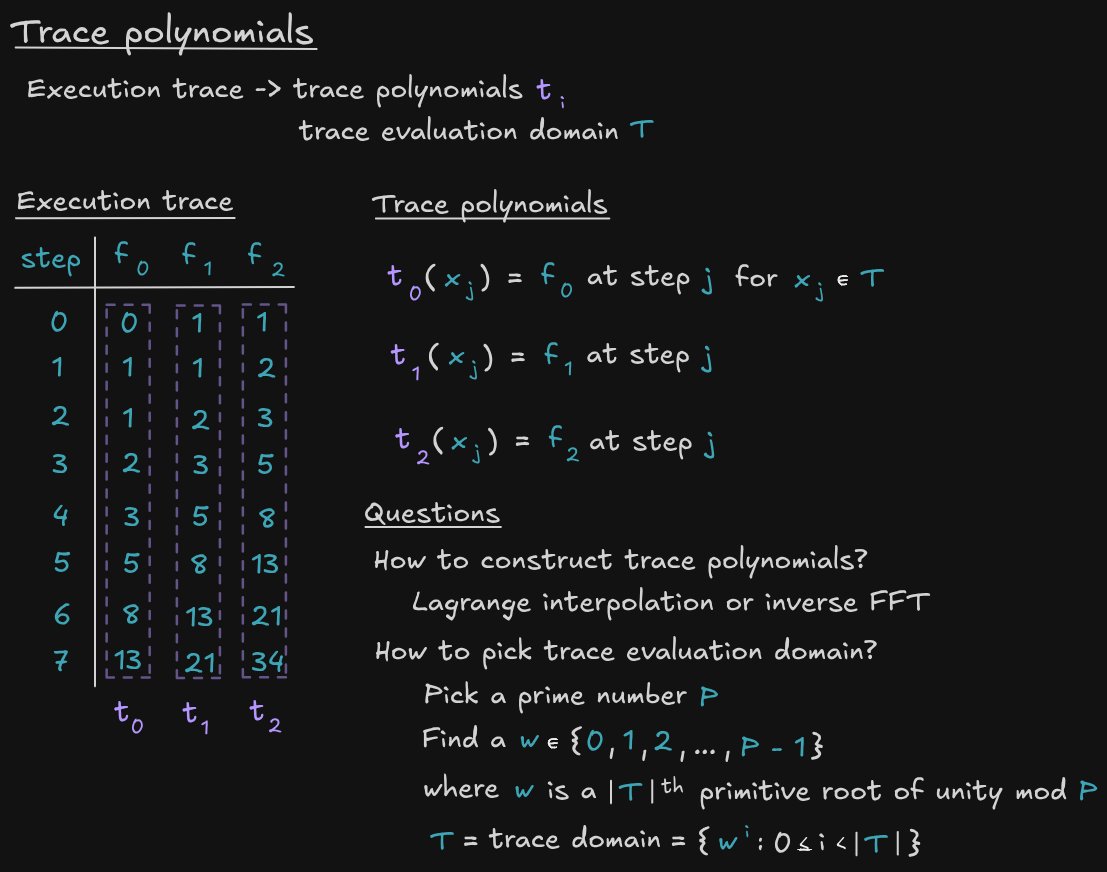 Trace polynomials
Execution trace -> trace polynomials t_i
trace evaluation domain T
Execution trace
step f_0 f_1 f_2
0 0 1 1
1 1 1 2
2 1 2 3
3 2 3 5
4 3 5 8
5 5 8 13
6 8 13 21
7 13 21 34
t_0 t_1 t_2
Trace polynomials
t_0(x_j) = f_0 at step j for x_j ∈ T
t_1(x_j) = f_1 at step j
t_2(x_j) = f_2 at step j
Questions
How to construct trace polynomials?
Lagrange interpolation or inverse FFT
How to pick trace evaluation domain?
Pick a prime number P
Find a w ∈ {0, 1, 2, ..., P - 1}
where w is a |T|^th primitive root of unity mod P
T = trace domain = {w^i : 0 ≤ i < |T|}